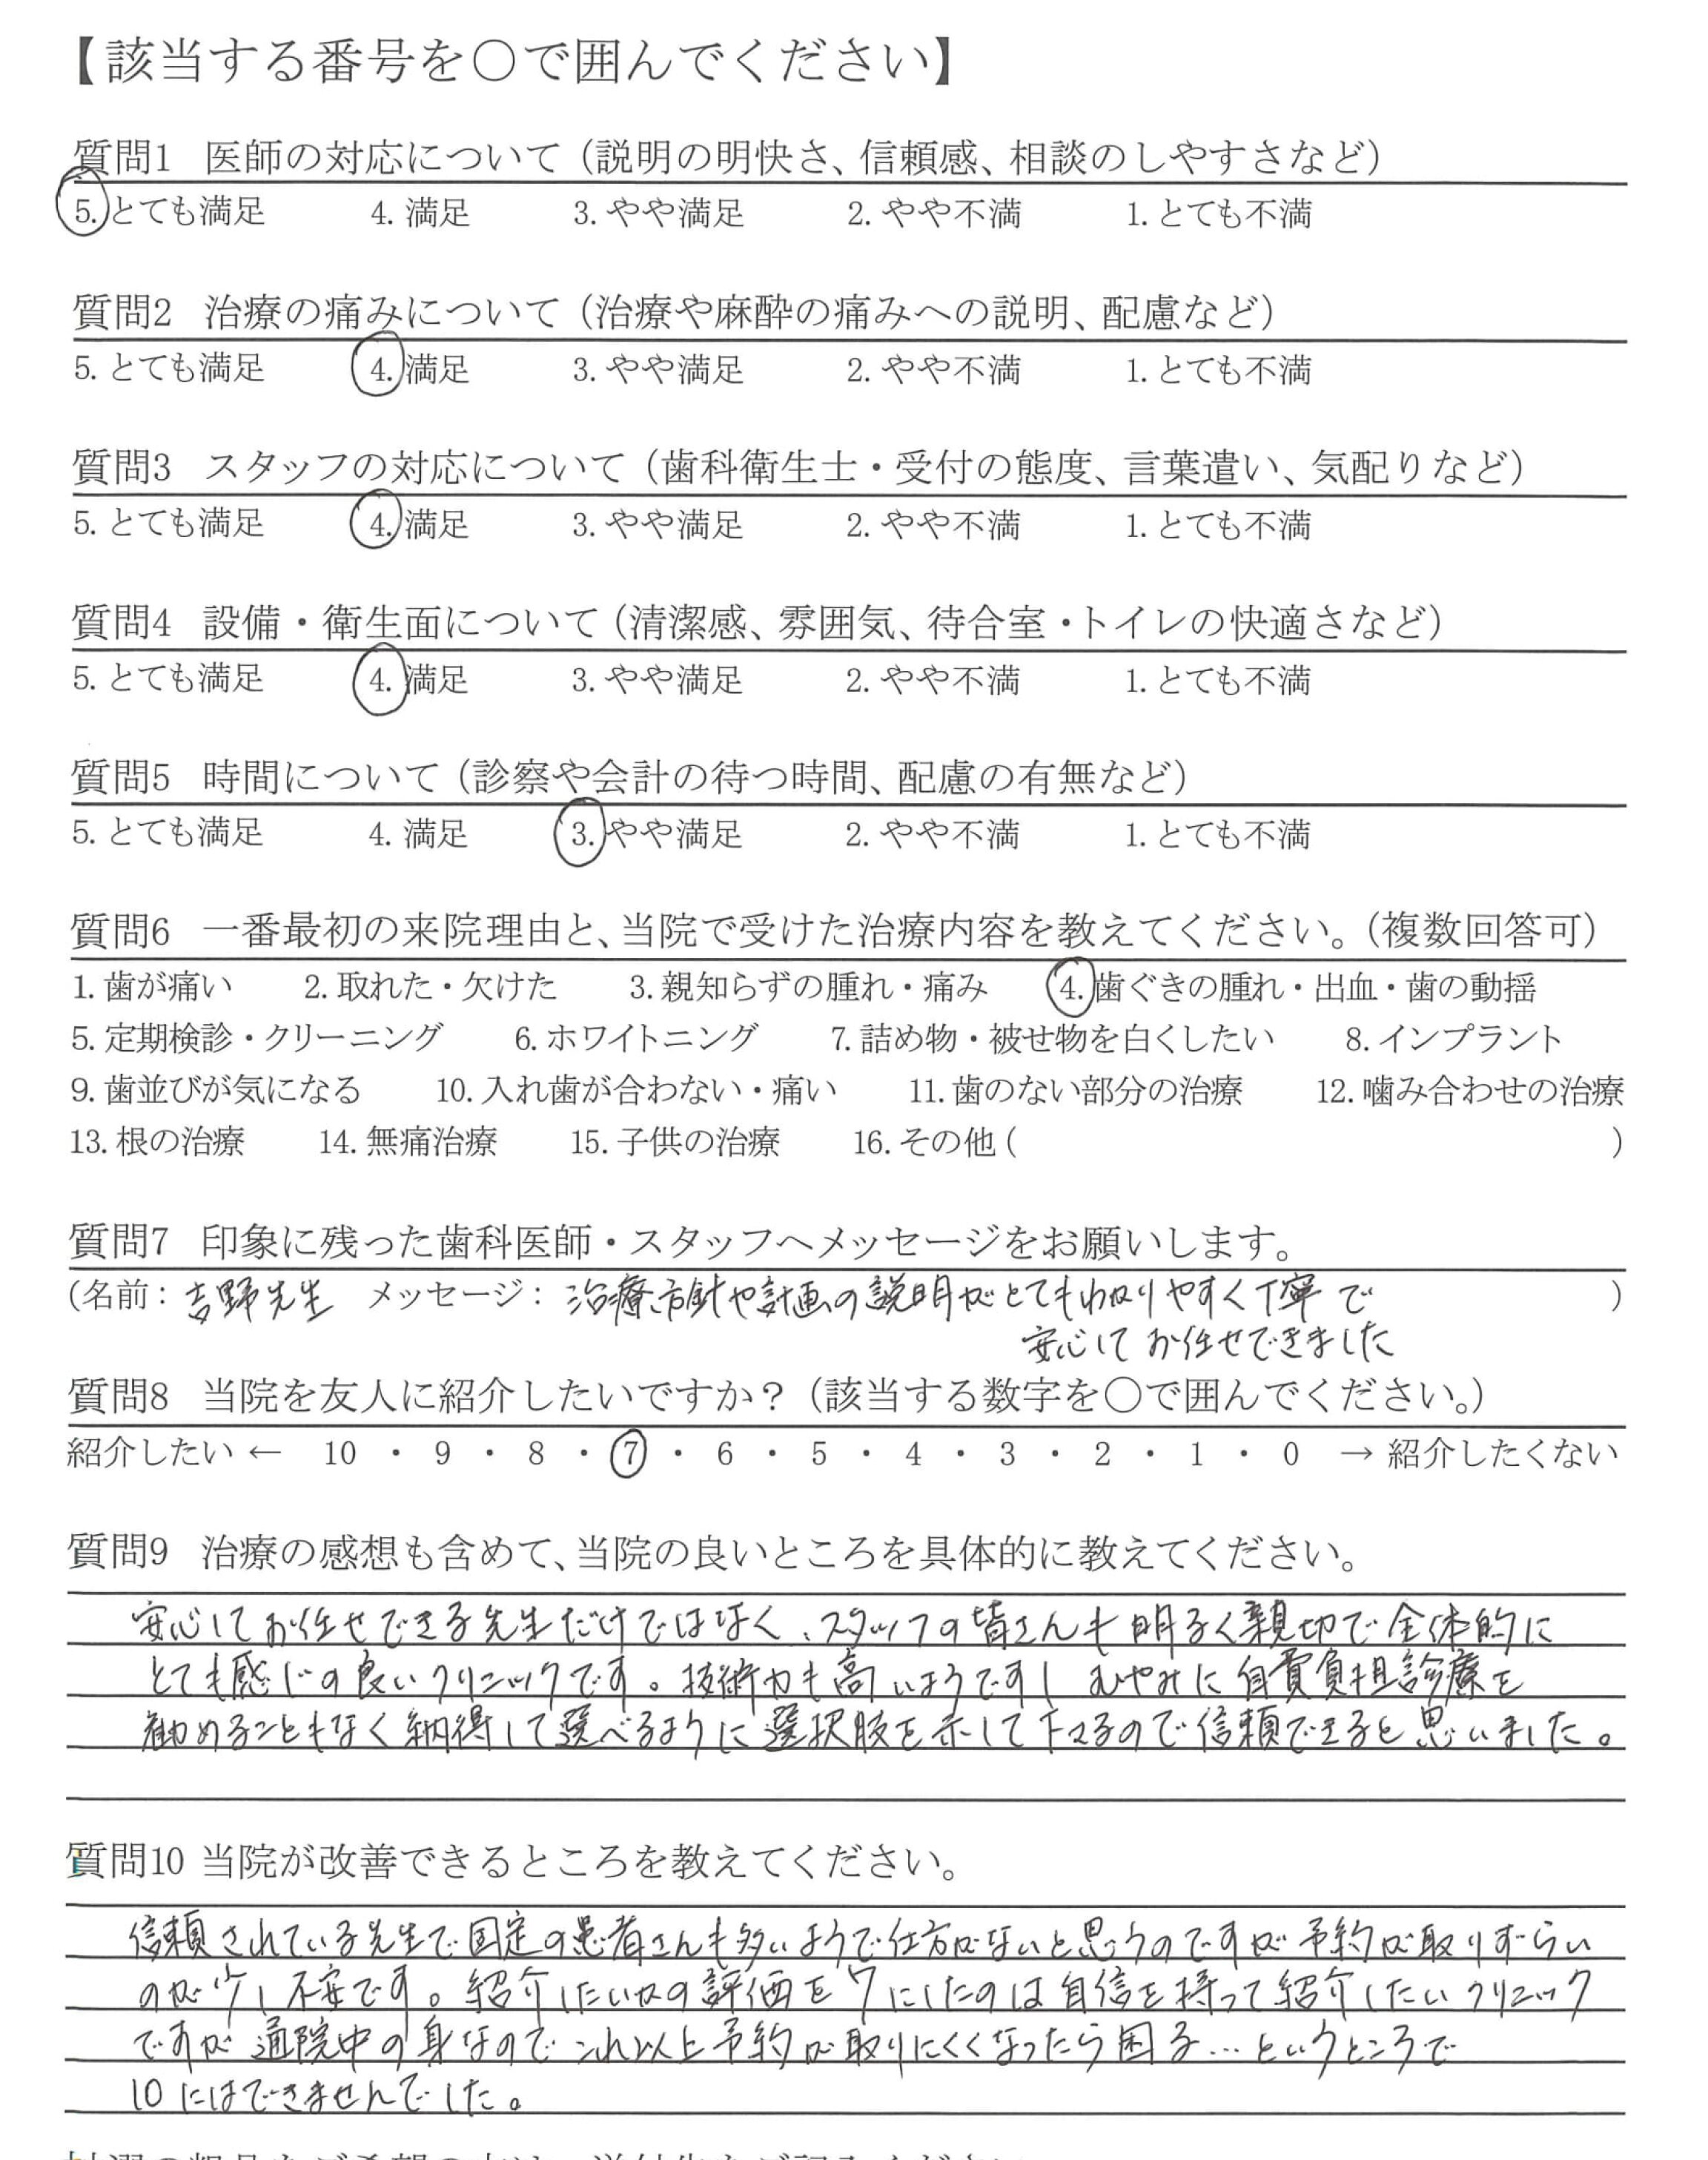 【該当する番号を○で囲んでください】
質問1 医師の対応について（説明の明快さ、信頼感、相談のしやすさなど）
5. とても満足 4. 満足 3. やや満足 2. やや不満 1. とても不満
質問2 治療の痛みについて（治療や麻酔の痛みへの説明、配慮など）
5. とても満足 4. 満足 3. やや満足 2. やや不満 1. とても不満
質問3 スタッフの対応について（歯科衛生士・受付の態度、言葉遣い、気配りなど）
5. とても満足 4. 満足 3. やや満足 2. やや不満 1. とても不満
質問4 設備・衛生面について（清潔感、雰囲気、待合室・トイレの快適さなど）
5. とても満足 4. 満足 3. やや満足 2. やや不満 1. とても不満
質問5 時間について（診察や会計の待つ時間、配慮の有無など）
5. とても満足 4. 満足 3. やや満足 2. やや不満 1. とても不満
質問6 一番最初の来院理由と、当院で受けた治療内容を教えてください。（複数回答可）
1. 歯が痛い 2. 取れた・欠けた 3. 親知らずの腫れ・痛み 4. 歯ぐきの腫れ・出血・歯の動揺
5. 定期検診・クリーニング 6. ホワイトニング 7. 詰め物・被せ物を白くしたい 8. インプラント
9. 歯並びが気になる 10. 入れ歯が合わない・痛い 11. 歯のない部分の治療 12. 噛み合わせの治療
13. 根の治療 14. 無痛治療 15. 子供の治療 16. その他（ ）
質問7 印象に残った歯科医師・スタッフへメッセージをお願いします。
（名前：吉野先生 メッセージ：治療方針や計画の説明がとてもわかりやすく丁寧で ）
安心してお任せできました
質問8 当院を友人に紹介したいですか？（該当する数字を○で囲んでください。）
紹介したい ← 10 ・ 9 ・ 8 ・ 7 ・ 6 ・ 5 ・ 4 ・ 3 ・ 2 ・ 1 ・ 0 → 紹介したくない
質問9 治療の感想も含めて、当院の良いところを具体的に教えてください。
安心してお任せできる先生だけではなく、スタッフの皆さんも明るく親切で全体的に
とても感じの良いクリニックです。技術力も高いようですし むやみに自費負担診療を
勧めることもなく納得して選べるように選択肢を示して下さるので信頼できると思いました。
質問10 当院が改善できるところを教えてください。
信頼されている先生で固定の患者さんも多いようで仕方がないと思うのですが予約が取りずらい
のが少し不安です。紹介したいかの評価を7にしたのは自信を持って紹介したいクリニック
ですが通院中の身なのでこれ以上予約が取りにくくなったら困る…というところで
10にはできませんでした。